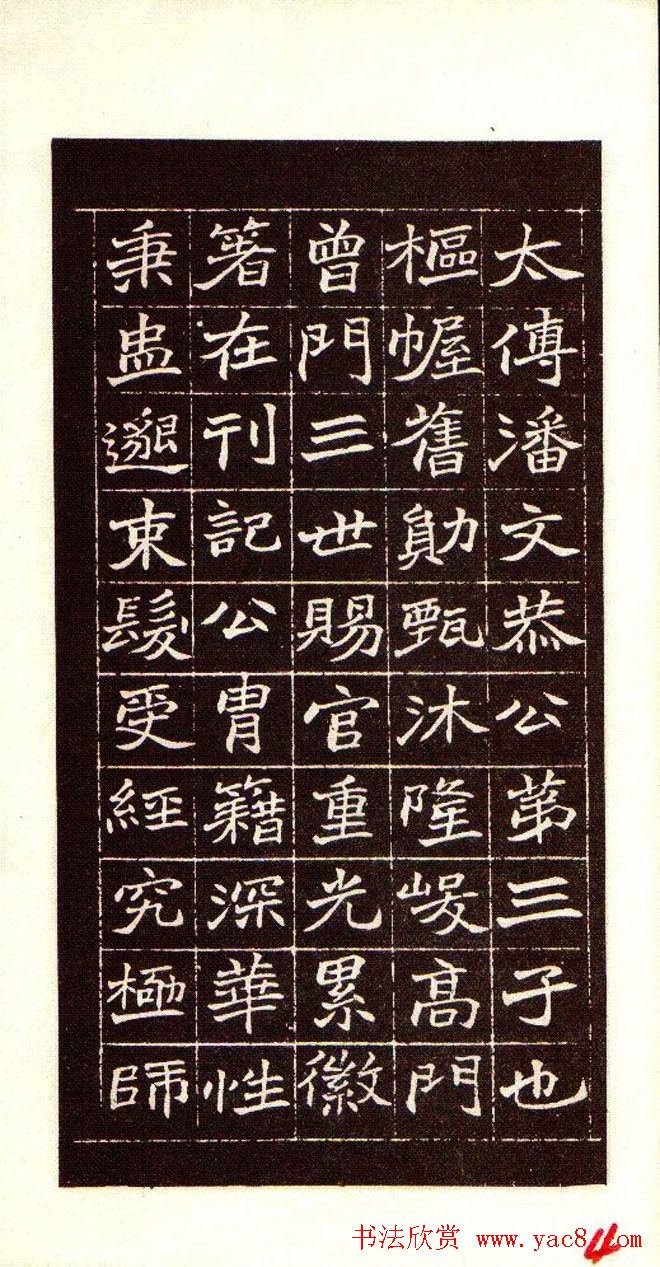 太傅潘文恭公苐三子也
樞幄舊勛甄沐隆崚高門
曾門三世賜官重光累徽
箸在刊記公胄籍深華性
秉盅邈束髮受經究極師
书法欣赏 www.yac8
4